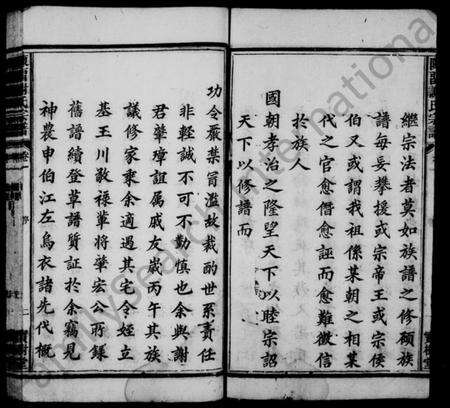 繼宗法者莫如族譜之修顧族
譜每妄攀援或宗帝王或宗侯
伯又或謂我祖係某朝之相某
代之官愈僭愈誣而愈難徵信
於族人
國朝孝治之隆望天下以睦宗詔
天下以修譜而
功令嚴禁冒濫故裁酌世系責任
非輕誠不可不勤慎也余與謝
君肇璋誼属戚友歲丙午其族
議修家乗余適過其宅令姪立
基王川敬祿華將肇宏公所錄
舊譜續登草譜質証於余竊見
神農申伯江左烏衣諸先代概
familysearch international